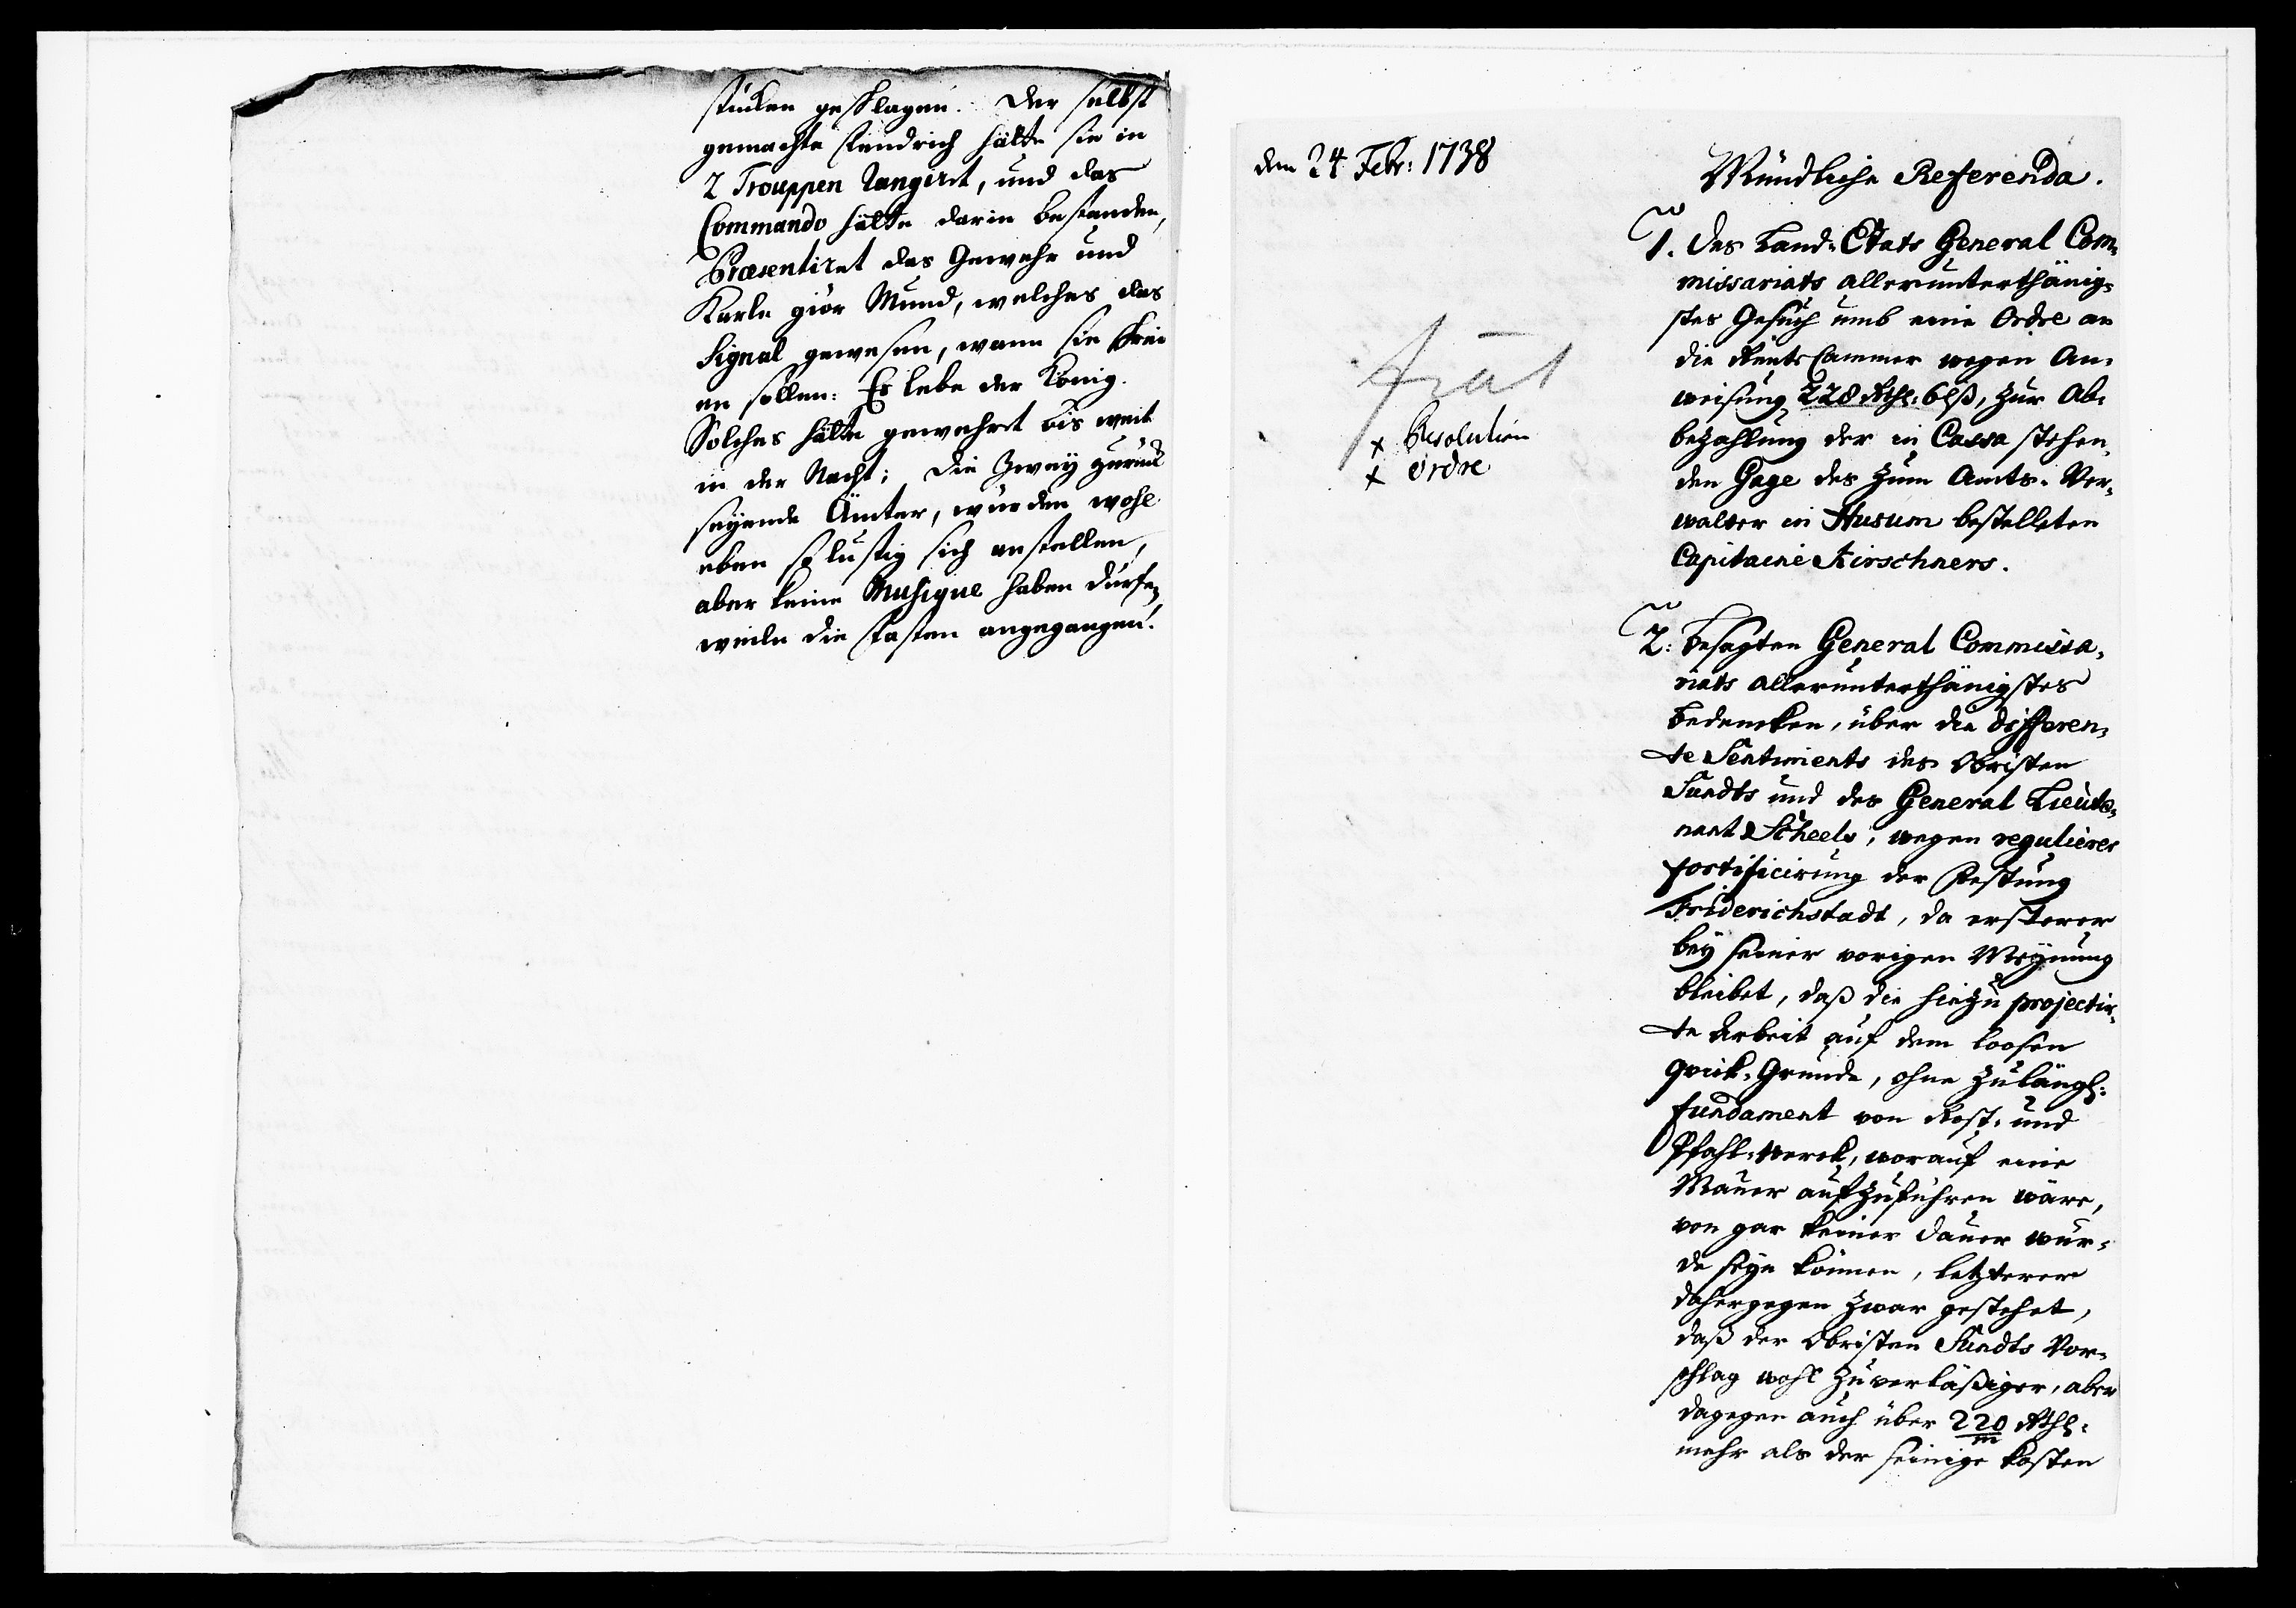 stücken geschlagen. Der selbst
gemachte Fendrich hätte sie in
2 Trouppen rangirt, und das
Commando hätte darin bestanden,
Præsentiret das Gewehr und
Karle giör Mund, welches das
Signal gewesen, wann sie schrei
en sollen: Es lebe der König.
Solches hätte gewehret bis weit
in der Nacht; die Zweÿ zurück
seÿende Ämter, würden wohl
eben so lustig sich anstellen,
aber keine Musique haben dürfen,
weile die Fasten angegangen.
den 24 Febr: 1738
fiat
x Resolution
x Ordre
Mündliche Referenda.
1. Des Land-Etats General Com-
missariats allerunterthänig-
stes Gesuch umb eine Ordre an
die RenteCammer wegen An-
weisung 228 Rthl: 6 lß, zur Ab-
bezahlung der in Cassa stehen-
den Gage des zum Amts-Ver-
walter in Husum bestelleten
Capitaine Kirschners.
2: Besagten General Commissa-
riats allerunterthänigstes
Bedencken, über die differen-
te Sentiments des Obristen
Sundts und des General Lieute-
nant Scheels, wegen regulieres
fortificirung der Festung
Friderichstadt, da ersterer
beÿ seiner vorigen Meÿnung
bleibet, daß die hiezu projectir-
te Arbeit auf dem loosen
Qvick-Grunde, ohne zulängl:
fundament von Rost- und
Pfahl-Werck, worauf eine
Mauer aufzuführen wäre,
von gar keiner Dauer wür-
de seÿn können, letzterer
dahergegen zwar gestehet,
daß der Obristen Sundts Vor-
schlag wohl zuverläßiger, aber
dagegen auch über 220/m Rthl:
mehr als der seinige kosten